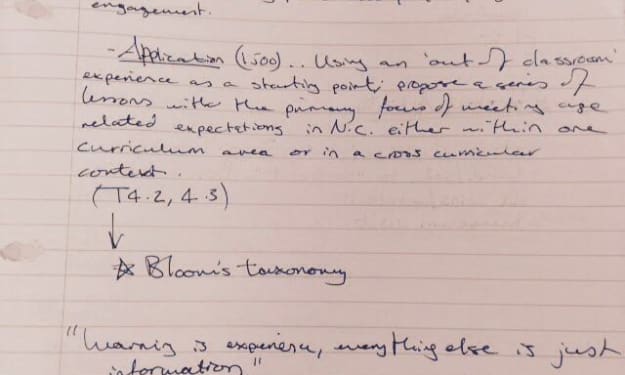 engagement.
- Application (1500)... Using an 'out of classroom'
experience as a starting point, propose a series of
lessons with the primary focus of meeting age
related expectations in N.C. either within one
curriculum area or in a cross curricular
context.
(T4.2, 4.3)
Bloom's taxonomy
"Learning is experience, everything else is just
information"